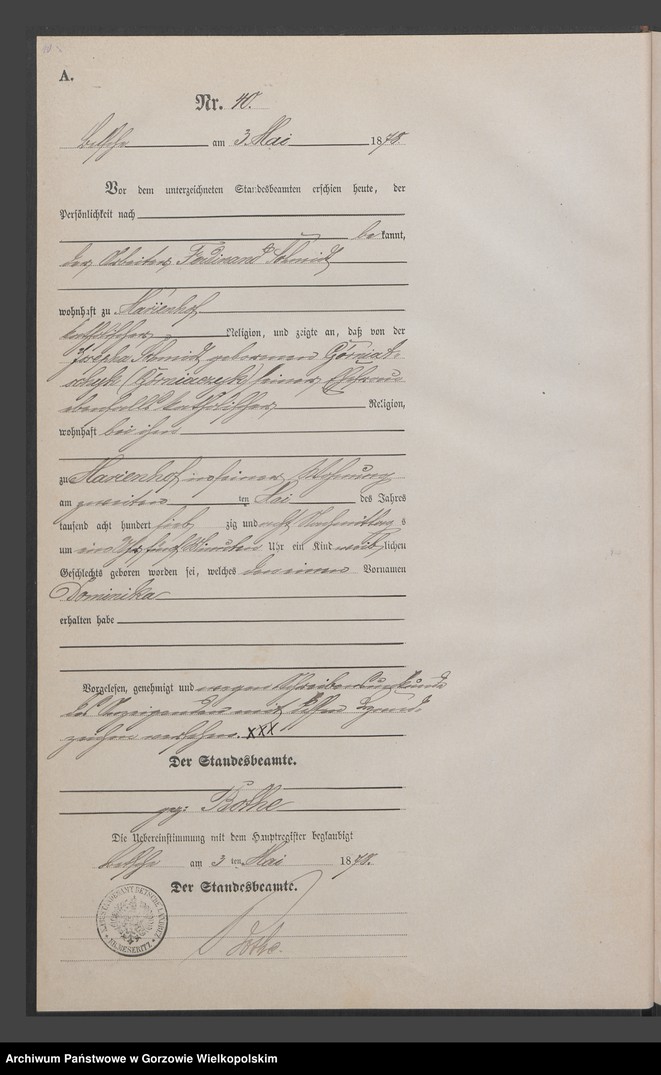 A.
Nr. 40.
Betsche am 3. Mai 1878.
Vor dem unterzeichneten Standesbeamten erschien heute, der
Persönlichkeit nach
be kannt,
der Arbeiter Ferdinand Schmidt
wohnhaft zu Marienhof
katholischer Religion, und zeigte an, daß von der
Josepha Schmidt geborenen Górniat-
schyk (Górniaczyk) seiner Ehefrau
ebenfalls katholischer Religion,
wohnhaft bei ihm
zu Marienhof in seiner Wohnung
am zweiten ten Mai des Jahres
tausend acht hundert sieb zig und acht Nachmittag s
um ein Uhr fünf Minuten Uhr ein Kind weib lichen
Geschlechts geboren worden sei, welches den einen Vornamen
Dominika
erhalten habe
Vorgelesen, genehmigt und wegen Schreibensunkunde
des Anzeigenden mit dessen Hand-
zeichen versehen. XXX
Der Standesbeamte.
gez: Bothe
Die Uebereinstimmung mit dem Hauptregister beglaubigt
Betsche am 3 ten Mai 1878.
Der Standesbeamte.
KR. MESERITZ
Bothe.
Archiwum Państwowe w Gorzowie Wielkopolskim